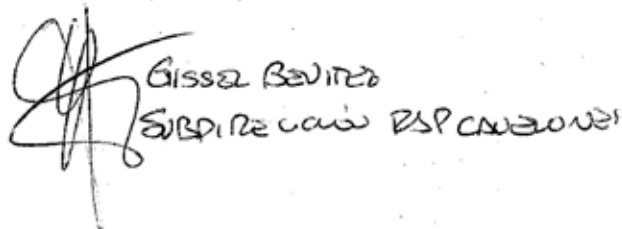 GISSEL BENITEZ
SUBDIRECCIÓN RAP CANELONES